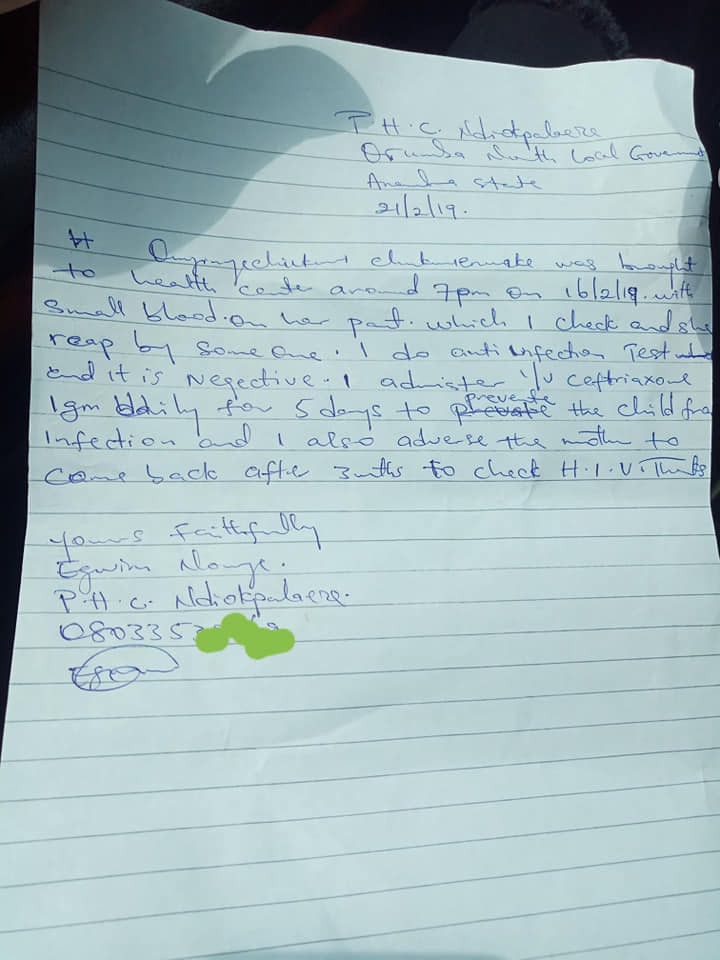 P.H.C. Ndiokpalaeze
Orumba North Local Governm
Anambra state
21/2/19.
was brought
to health center around 7pm on 16/2/19. with
small blood on her part. which I check and she
reap by some one. I do anti infection Test
and it is Negective. I admister I/V ceftriaxone
1gm daily for 5 days to prevente the child fro
Infection and I also adverse the mother to
come back after 3mths to check H.I.V. Thanks
yours Faithfully
Egwim
P.H.C. Ndiokpalaeze.
0803353